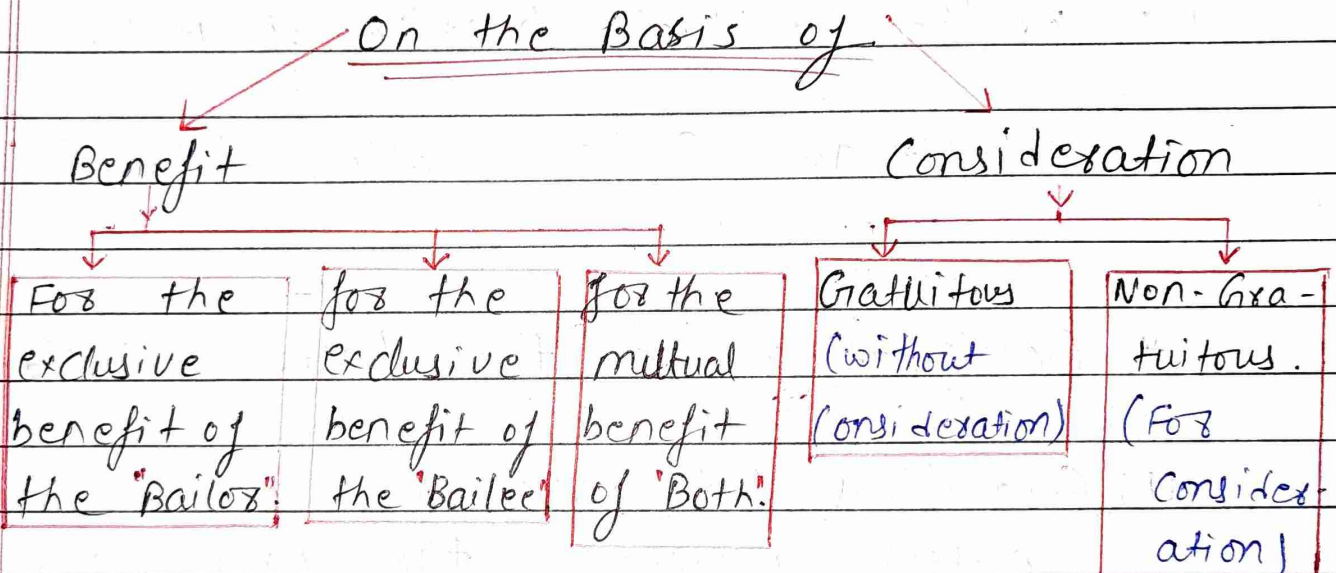 On the Basis of
Benefit
Consideration
For the
exclusive
benefit of
the "Bailor".
for the
exclusive
benefit of
the "Bailee"
for the
mutual
benefit
of "Both".
Gratuitous
(without
Consideration)
Non-Gra-
tuitous.
(For
Consider-
ation)